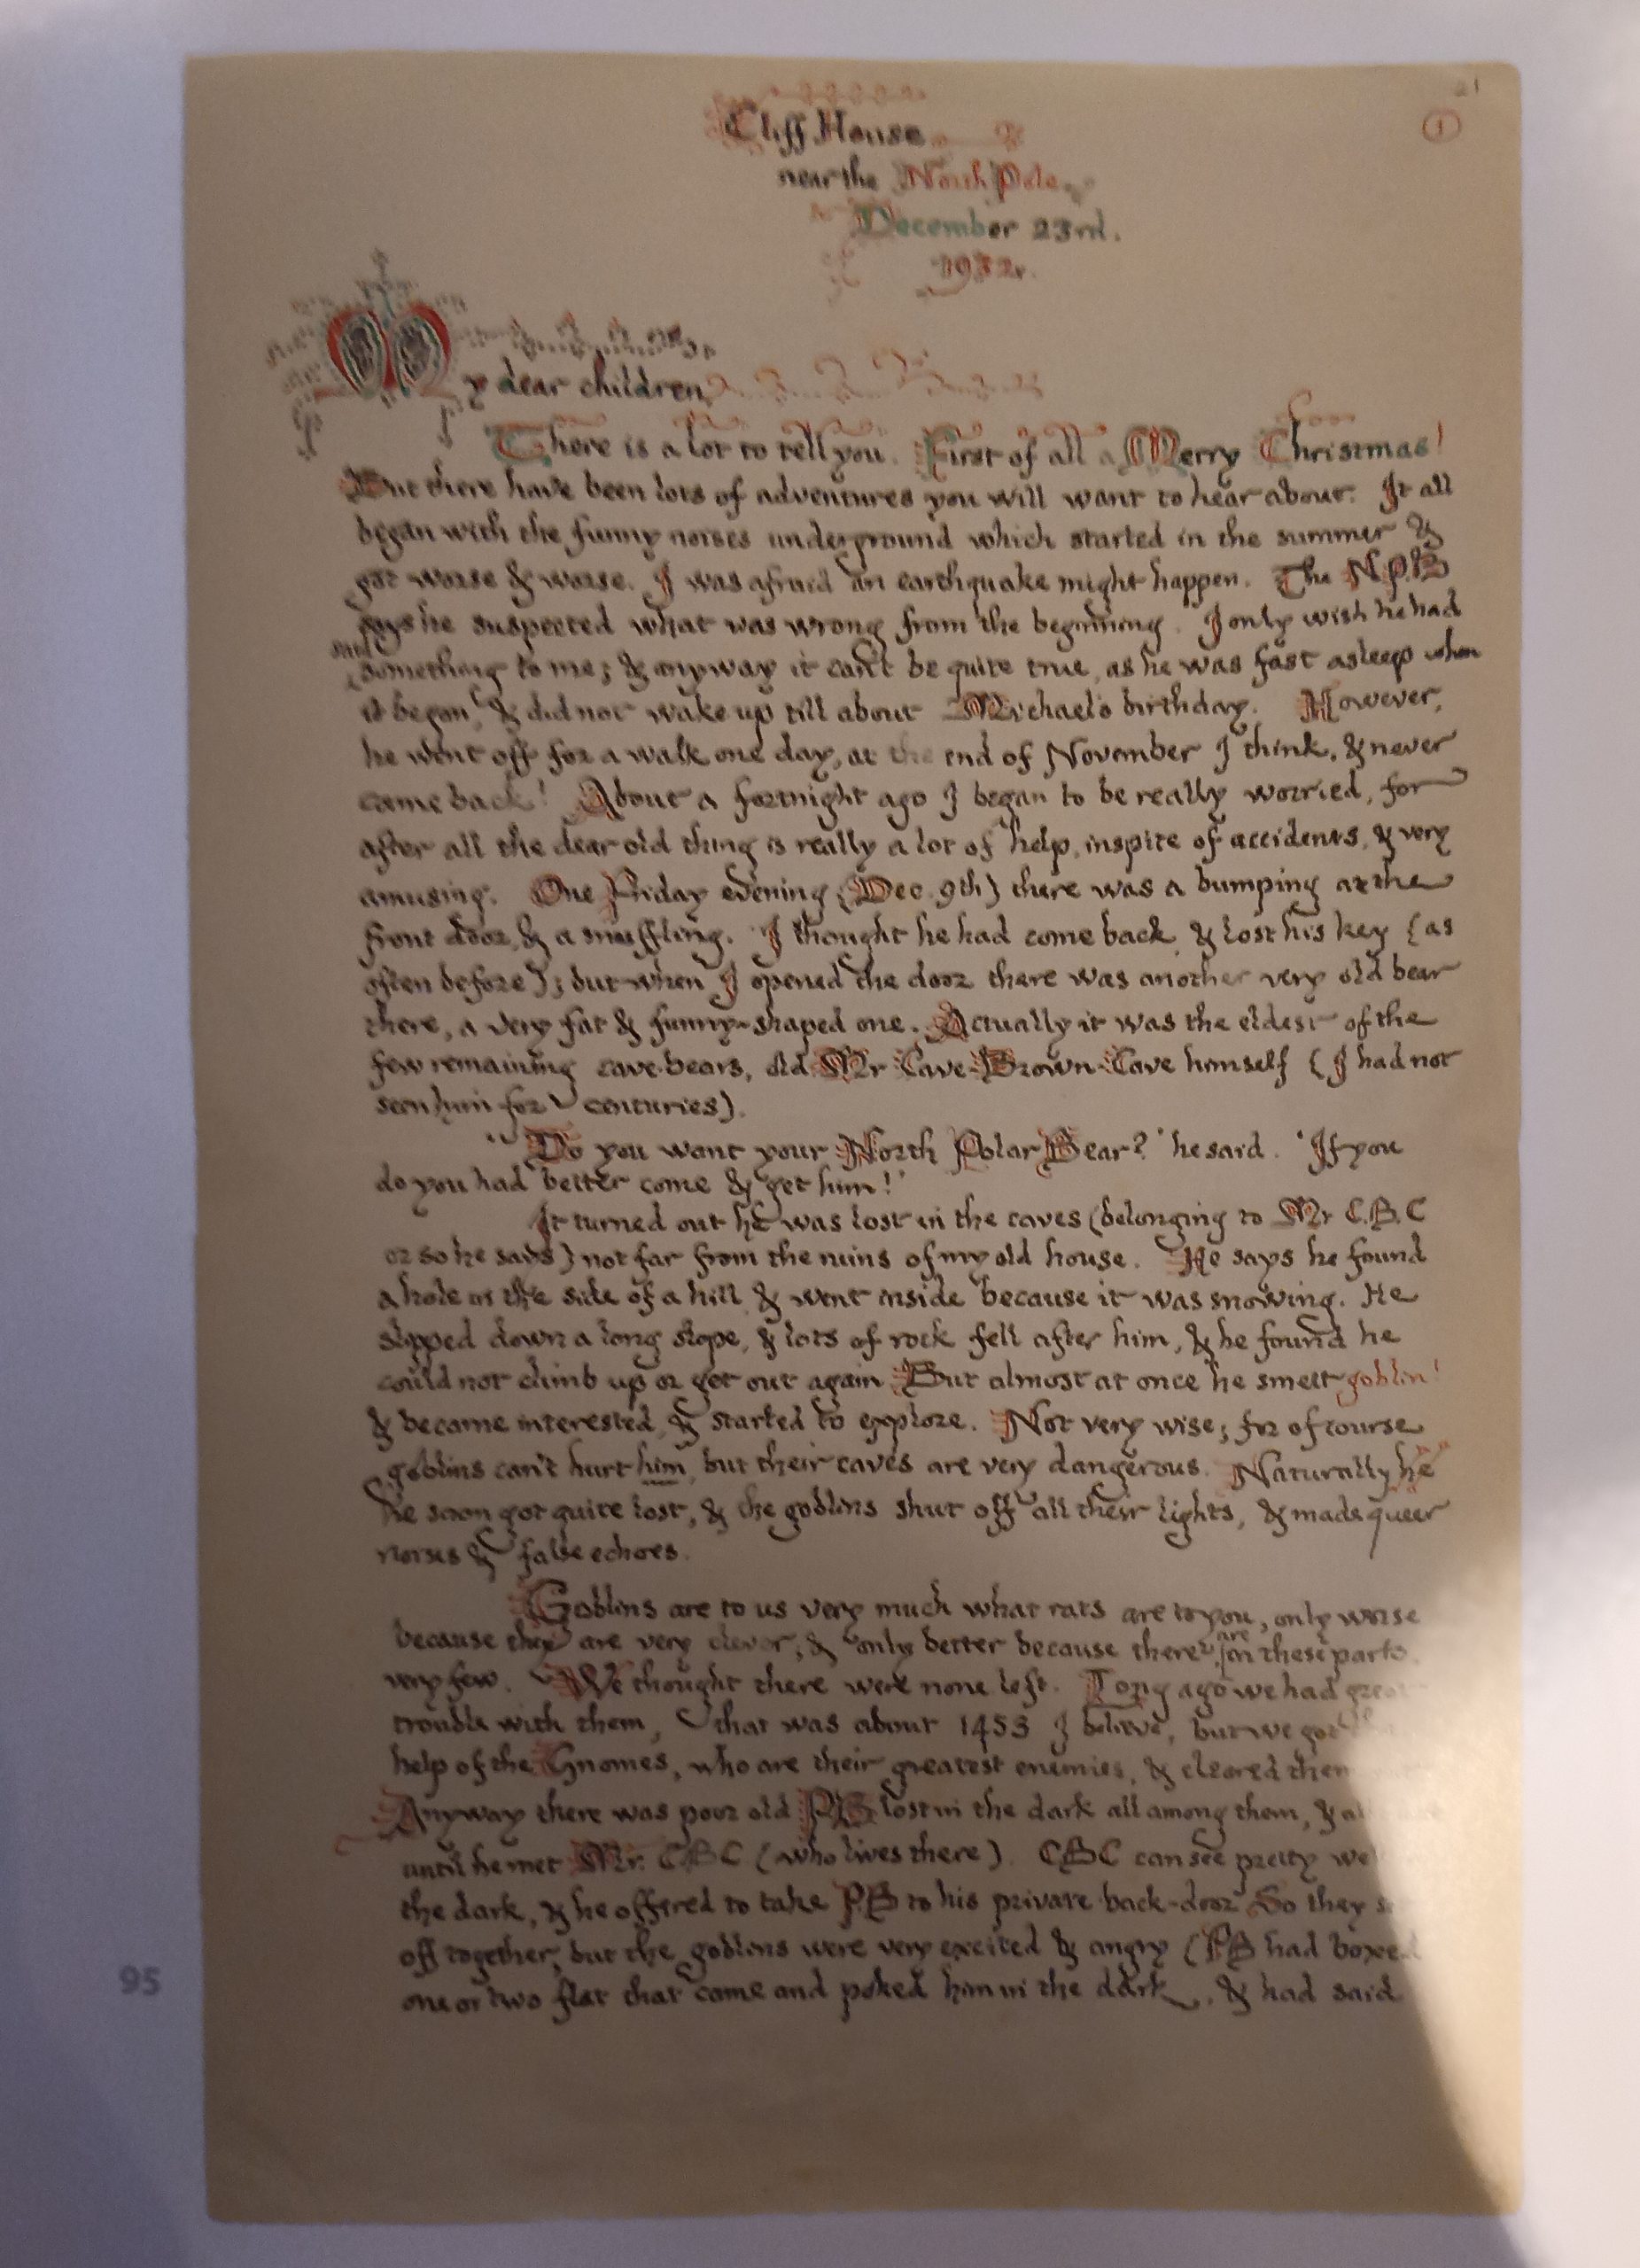 21
1
Cliff House
near the North Pole
December 23rd.
1932.
My dear children,
There is a lot to tell you. First of all a Merry Christmas!
But there have been lots of adventures you will want to hear about. It all
began with the funny noises underground which started in the summer &
got worse & worse. I was afraid an earthquake might happen. The N.P.B
says he suspected what was wrong from the beginning. I only wish he had
said
something to me; & anyway it can't be quite true, as he was fast asleep when
it began, & did not wake up till about Michael's birthday. However,
he went off for a walk one day, at the end of November I think, & never
came back! About a fortnight ago I began to be really worried, for
after all the dear old thing is really a lot of help, inspite of accidents, & very
amusing. One Friday evening (Dec. 9th) there was a bumping at the
front door, & a snuffling. I thought he had come back, & lost his key (as
often before); but when I opened the door there was another very old bear
there, a very fat & funny-shaped one. Actually it was the eldest of the
few remaining cave-bears, old Mr Cave-Brown-Cave himself (I had not
seen him for centuries).
'Do you want your North Polar Bear?' he said. 'If you
do you had better come & get him!'
It turned out he was lost in the caves (belonging to Mr C.B.C
or so he says) not far from the ruins of my old house. He says he found
a hole in the side of a hill & went inside because it was snowing. He
slipped down a long slope, & lots of rock fell after him, & he found he
could not climb up or get out again. But almost at once he smelt goblin!
& became interested, & started to explore. Not very wise; for of course
goblins can't hurt him, but their caves are very dangerous. Naturally he
he soon got quite lost, & the goblins shut off all their lights, & made queer
noises & false echoes.
Goblins are to us very much what rats are to you, only worse
because they are very clever; & only better because there are in these parts
very few. We thought there were none left. Long ago we had great
trouble with them, that was about 1453 I believe, but we got
help of the Gnomes, who are their greatest enemies, & cleared them
Anyway there was poor old PB lost in the dark all among them, &
until he met Mr. CBC (who lives there). CBC can see pretty
the dark, & he offered to take P.B to his private back-door. So they
off together, but the goblins were very excited & angry (PB had boxed
one or two flat that came and poked him in the dark, & had said
95